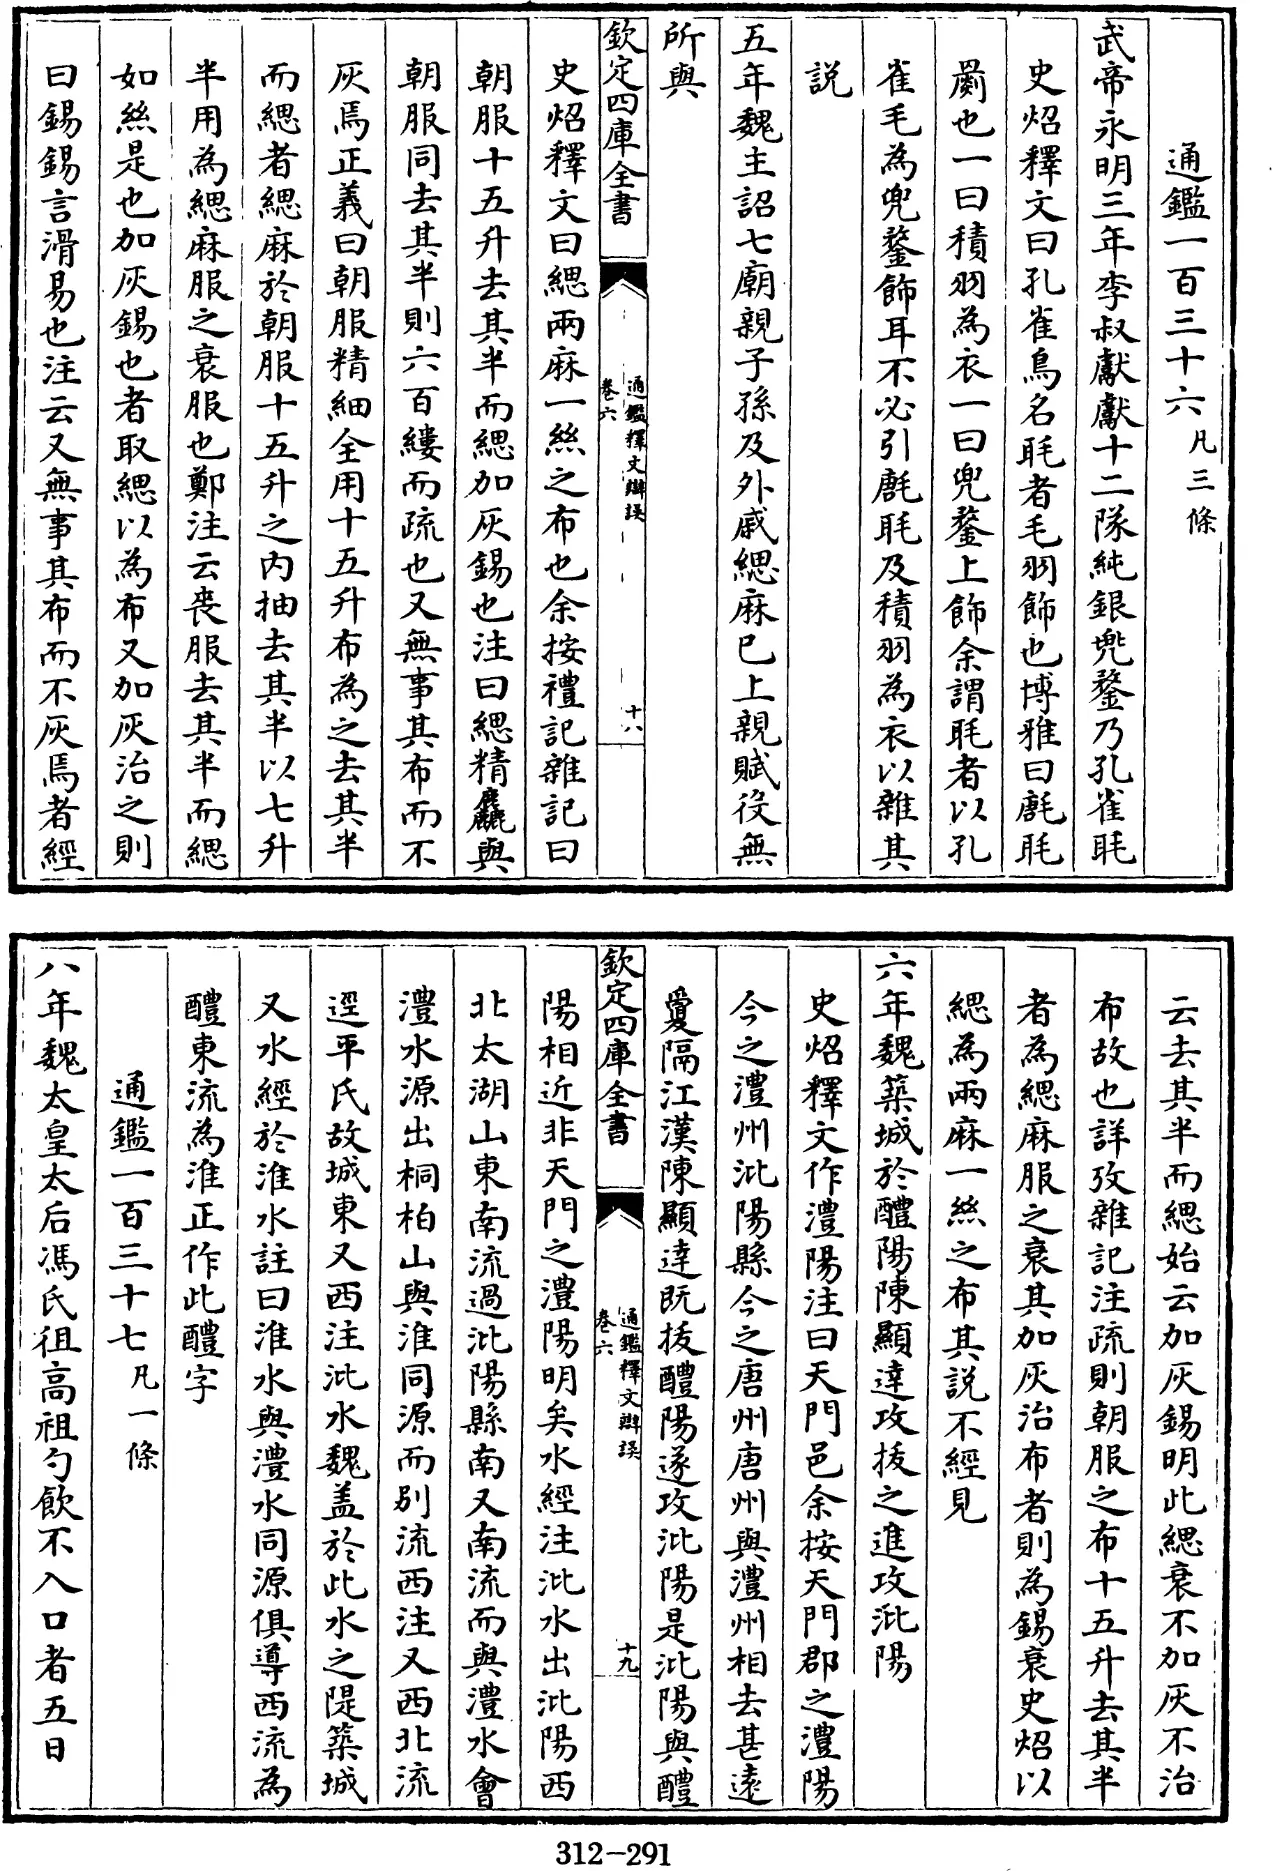 通鑑一百三十六凡三條
武帝永明三年李叔獻獻十二隊純銀兠鍪乃孔雀毦
史炤釋文曰孔雀鳥名毦者毛羽飾也博雅曰㲪毦
罽也一曰積羽為衣一曰兜鍪上飾余謂毦者以孔
雀毛為兜鍪飾耳不必引㲪毦及積羽為衣以雜其
説
五年魏主詔七廟親子孫及外戚緦麻已上親賦役無
所與
欽定四庫全書
通鑑釋文辯誤
卷六
十八
史炤釋文曰緦兩麻一絲之布也余按禮記雜記曰
朝服十五升去其半而緦加灰錫也注曰緦精麤與
朝服同去其半則六百縷而疏也又無事其布而不
灰焉正義曰朝服精細全用十五升布為之去其半
而緦者緦麻於朝服十五升之内抽去其半以七升
半用為緦麻服之衰服也鄭注云喪服去其半而緦
如絲是也加灰錫也者取緦以為布又加灰治之則
曰錫錫言滑易也注云又無事其布而不灰焉者經
云去其半而緦始云加灰錫明此緦衰不加灰不治
布故也詳攷雜記注疏則朝服之布十五升去其半
者為緦麻服之衰其加灰治布者則為錫衰史炤以
緦為兩麻一絲之布其説不經見
六年魏築城於醴陽陳顯達攻拔之進攻沘陽
史炤釋文作澧陽注曰天門邑余按天門郡之澧陽
今之澧州沘陽縣今之唐州唐州與澧州相去甚遠
敻隔江漢陳顯達既拔醴陽遂攻沘陽是沘陽與醴
欽定四庫全書
通鑑釋文辯誤
卷六
十九
陽相近非天門之澧陽明矣水經注沘水出沘陽西
北太湖山東南流過沘陽縣南又南流而與澧水會
澧水源出桐柏山與淮同源而别流西注又西北流
逕平氏故城東又西注沘水魏盖於此水之隄築城
又水經於淮水註曰淮水與澧水同源俱導西流為
醴東流為淮正作此醴字
通鑑一百三十七凡一條
八年魏太皇太后馮氏殂高祖勺飲不入口者五日
312-291